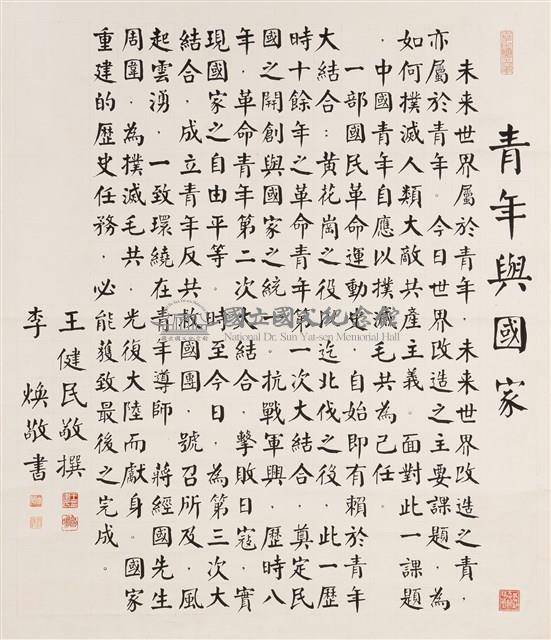 青年與國家
未来世界屬於青年．未来世界改造之責．
亦屬於青年．今日世界改造之主要課題．為
如何撲滅人類大敵共產主義．面對此一課題
．中國青年自應以撲滅毛共為己任．
一部國民革命運動史．自始即有賴於青年
大結合：黃花崗之役以迄北伐之後．此一歷
時十餘年之革命青年第一次大結合．奠定民
國之開創與國家之統一．抗戰軍興．歷時八
年．革命青年第二次大結合．擊敗日寇．實
現國家之自由平等．時至今日．為第三次大
結合．成立青年反共救國團．號召所及．風
起雲湧．一致環繞在青年導師 蔣經國先生
周圍．為撲滅毛共．光復大陸而獻身．國家
重建的歷史任務．必能獲致最後之完成．
王健民敬撰
李煥敬書
國立國父紀念館
National Dr. Sun Yat-sen Memorial Hall